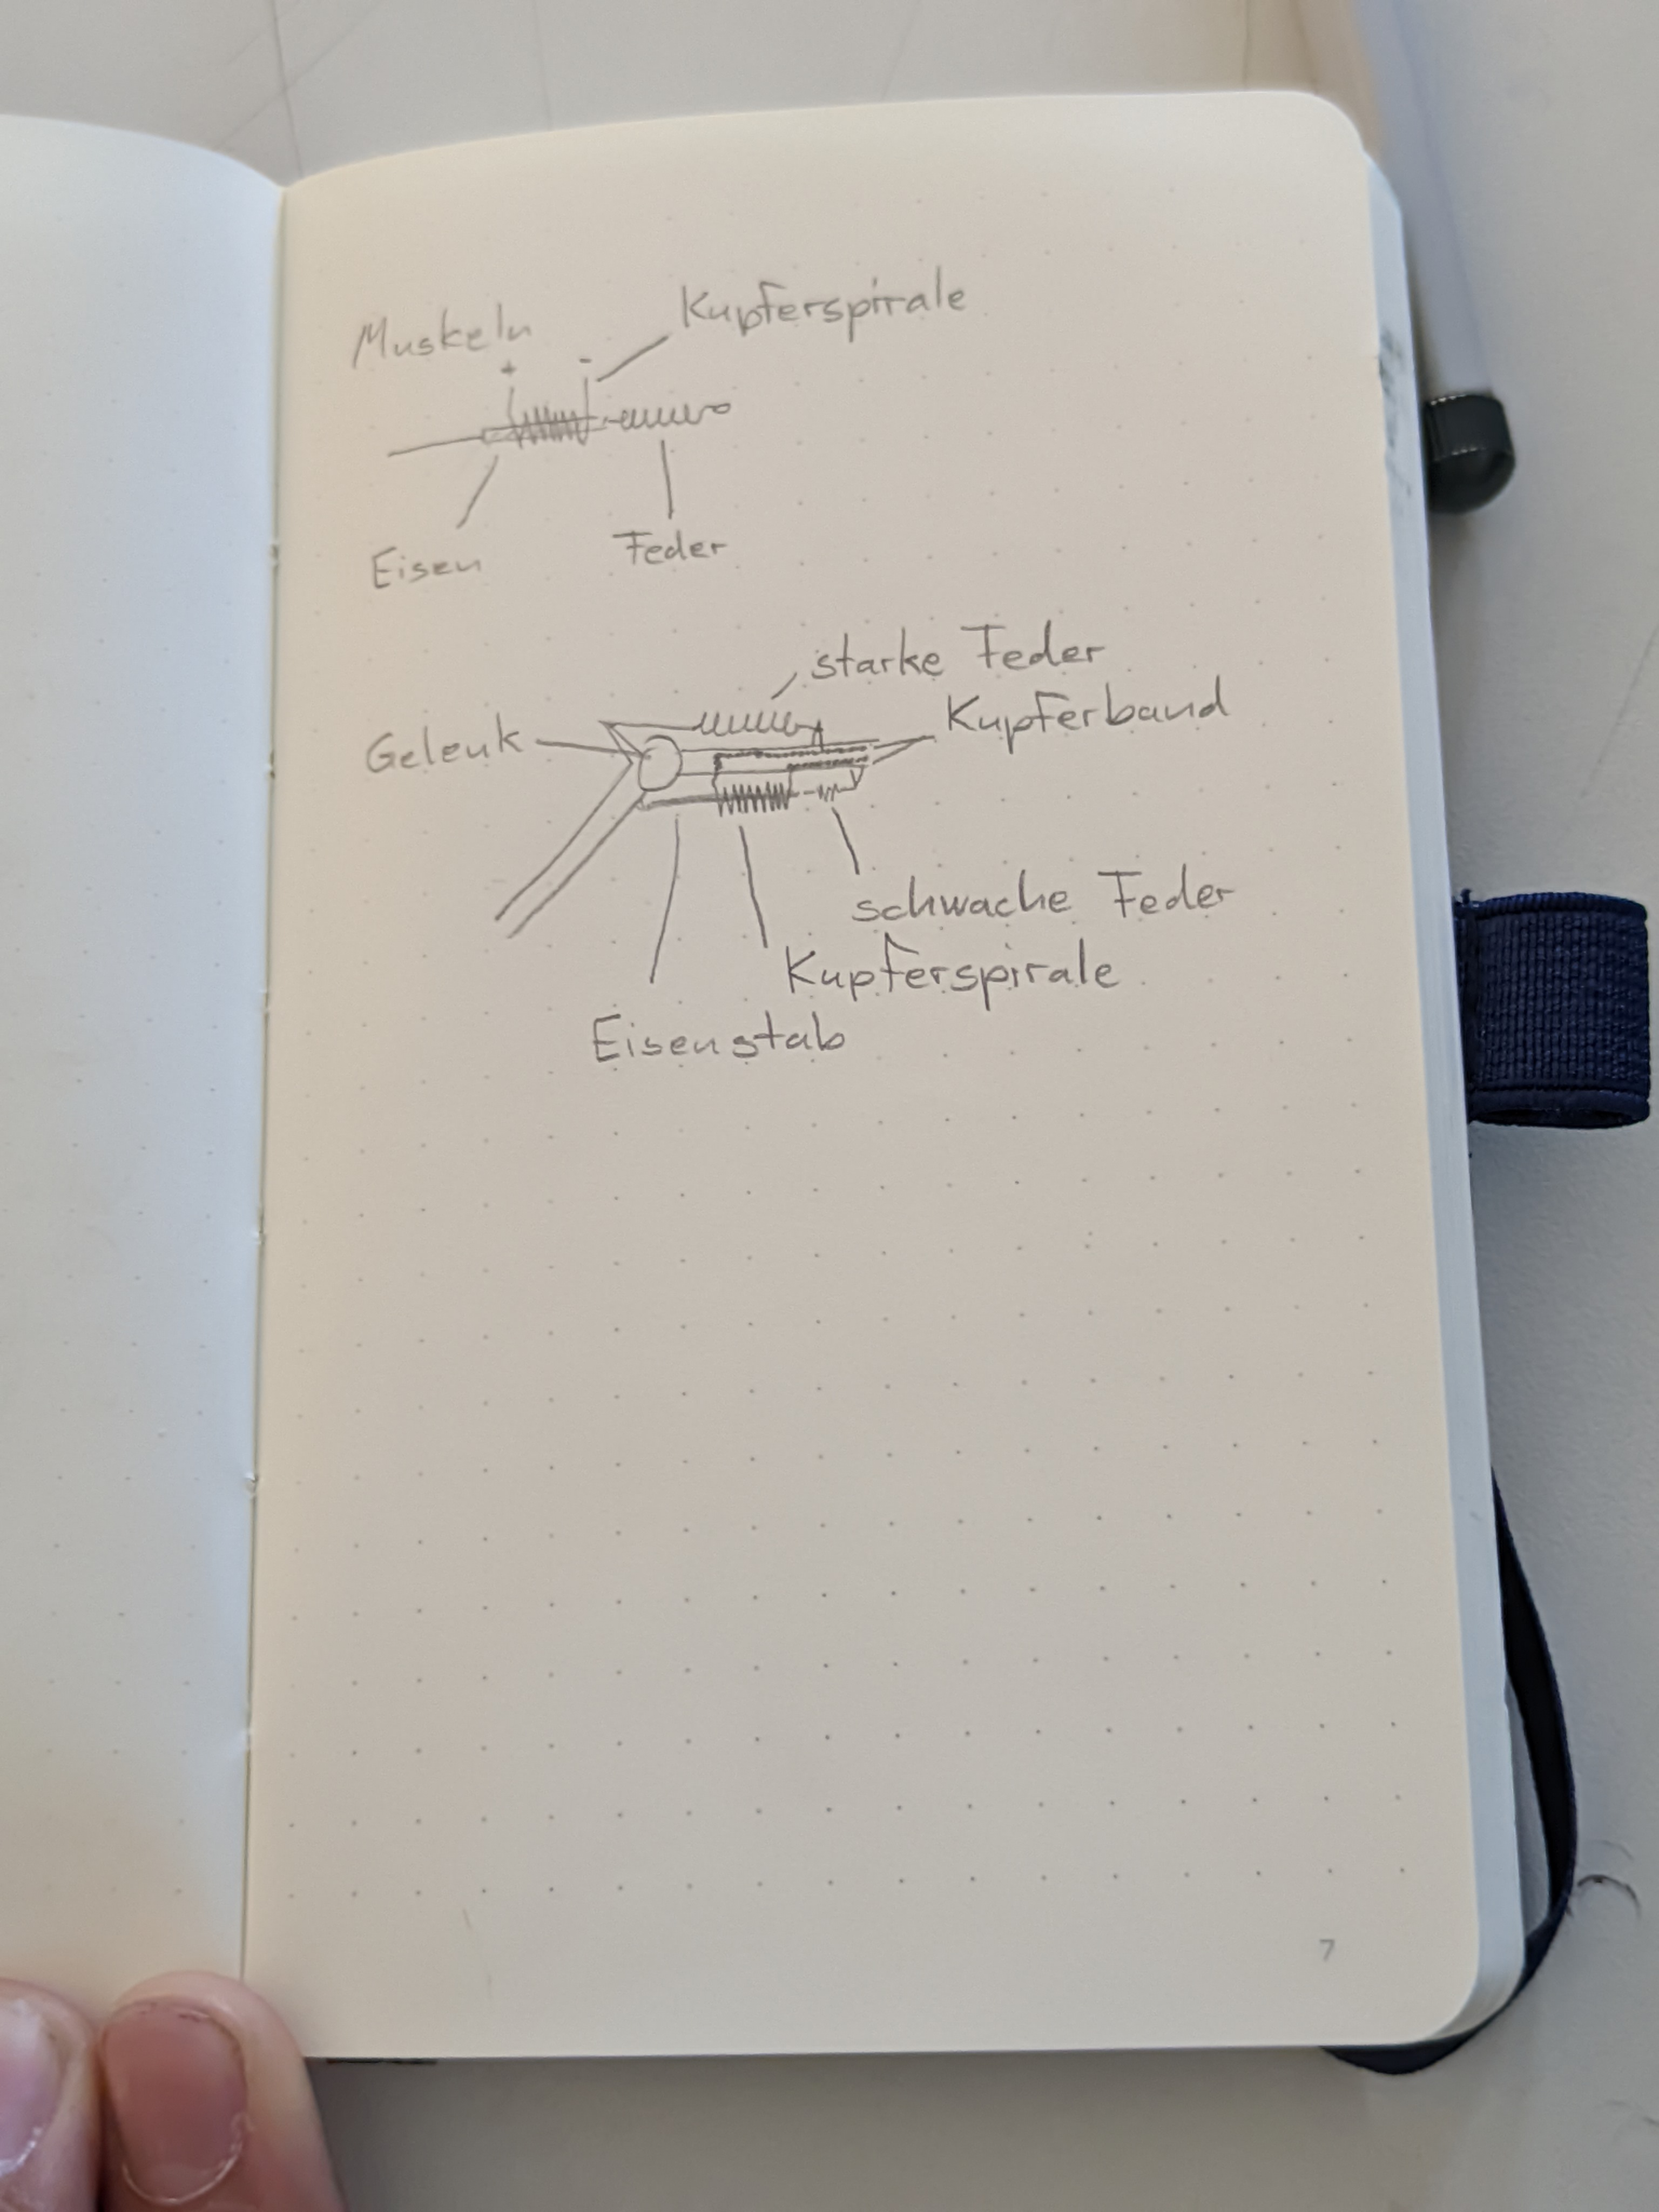 Muskeln
Kupferspirale
+ -
Eisen
Feder
starke Feder
Gelenk
Kupferband
schwache Feder
Kupferspirale
Eisenstab
7